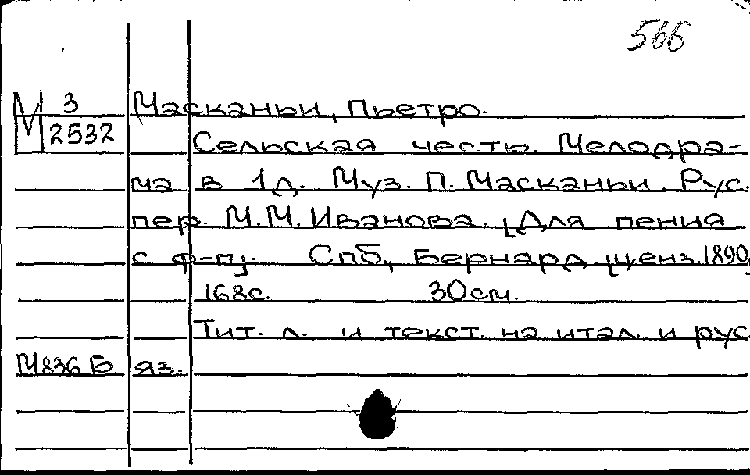 566
М 3 Масканьи, Пьетро.
2532 Сельская честь. Мелодра-
ма в 1 д. Муз. П. Масканьи. Рус.
пер. М.М. Иванова. [Для пения
с ф-п]. Спб, Бернард. [ценз. 1890]
168с. 30см.
Тит. л. и текст. на итал. и рус
М836 Б яз.